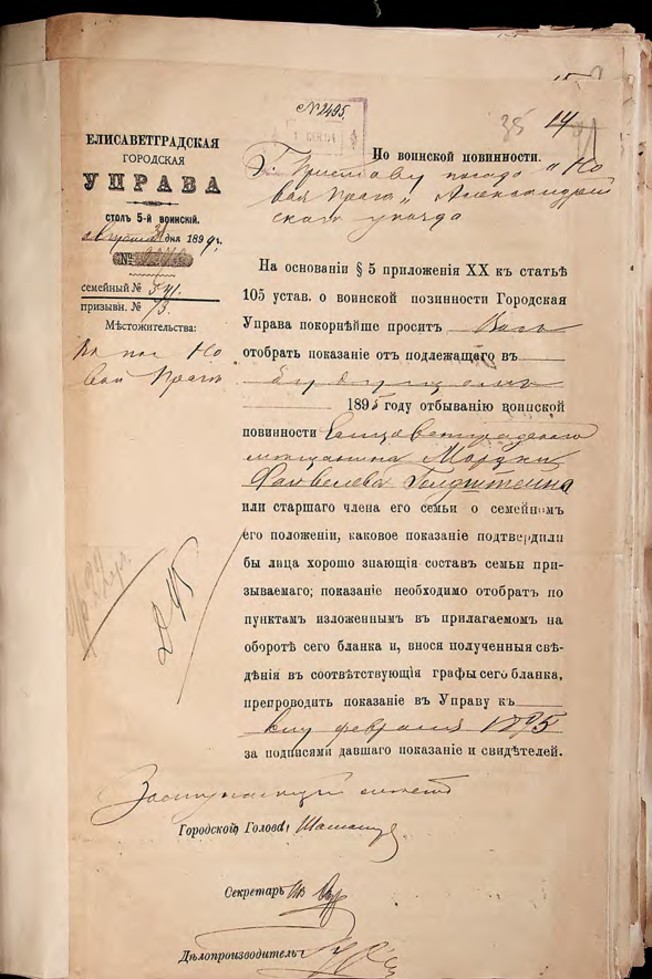 №2495.
35 14
ЕЛИСАВЕТГРАДСКАЯ
ГОРОДСКАЯ
УПРАВА
столъ 5-й воинскій.
августа дня 1894 г.
№
семейный № 541.
призывн. № 13.
Мѣстожительства:
Въ пос. Но
вой Прагѣ
По воинской повинности.
Г. Приставу посада „Но
вая Прага„ Александрій
скаго уѣзда
На основаніи § 5 приложенія XX къ статьѣ
105 устав. о воинской повинности Городская
Управа покорнѣйше проситъ Васъ
отобрать показаніе отъ подлежащаго въ
будущемъ
1895 году отбыванію воинской
повинности Елисаветградскаго
мѣщанина Мордки
Файвелева Голдштейна
или старшаго члена его семьи о семейномъ
его положеніи, каковое показаніе подтвердили
бы лица хорошо знающія составъ семьи при-
зываемаго; показаніе необходимо отобрать по
пунктамъ изложеннымъ въ прилагаемомъ на
оборотѣ сего бланка и, внося полученныя свѣ-
дѣнія въ соотвѣтствующія графы сего бланка,
препроводить показаніе въ Управу къ
февраля 1895
за подписями давшаго показаніе и свидѣтелей.
Заступающій мѣсто
Городского Головы
Секретарь
Дѣлопроизводитель